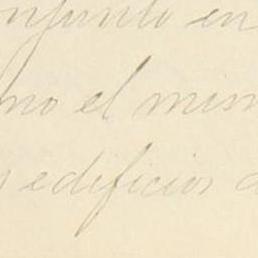 onjunto en
mo el mism
s edificios d